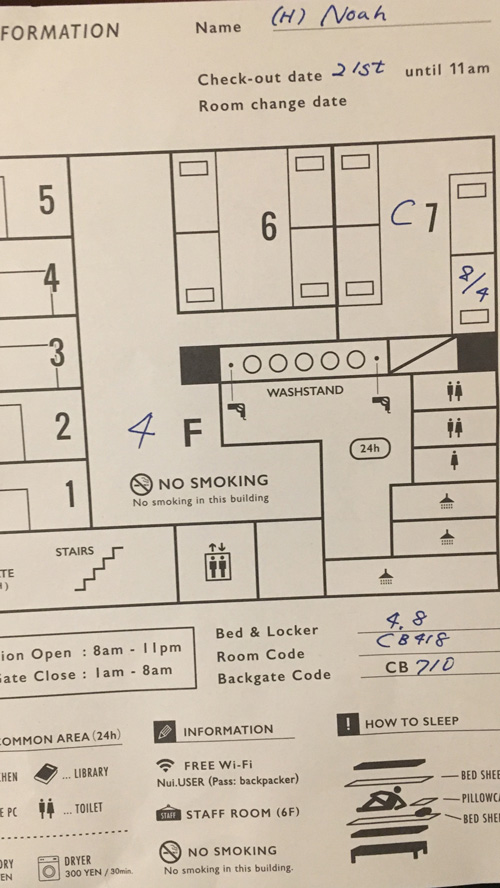 FORMATION
Name (H) Noah
Check-out date 21st until 11am
Room change date
5
6
C 7
4
8/4
3
WASHSTAND
2
4 F
24h
NO SMOKING
No smoking in this building
1
STAIRS
TE
)
ion Open : 8am - 11pm
ate Close : 1am - 8am
Bed & Locker 4.8
Room Code CB418
Backgate Code CB 710
OMMON AREA (24h)
HEN ... LIBRARY
E PC ... TOILET
RY
EN
DRYER
300 YEN / 30min.
INFORMATION
FREE Wi-Fi
Nui.USER (Pass: backpacker)
STAFF STAFF ROOM (6F)
NO SMOKING
No smoking in this building.
! HOW TO SLEEP
BED SHEE
PILLOWCA
BED SHE